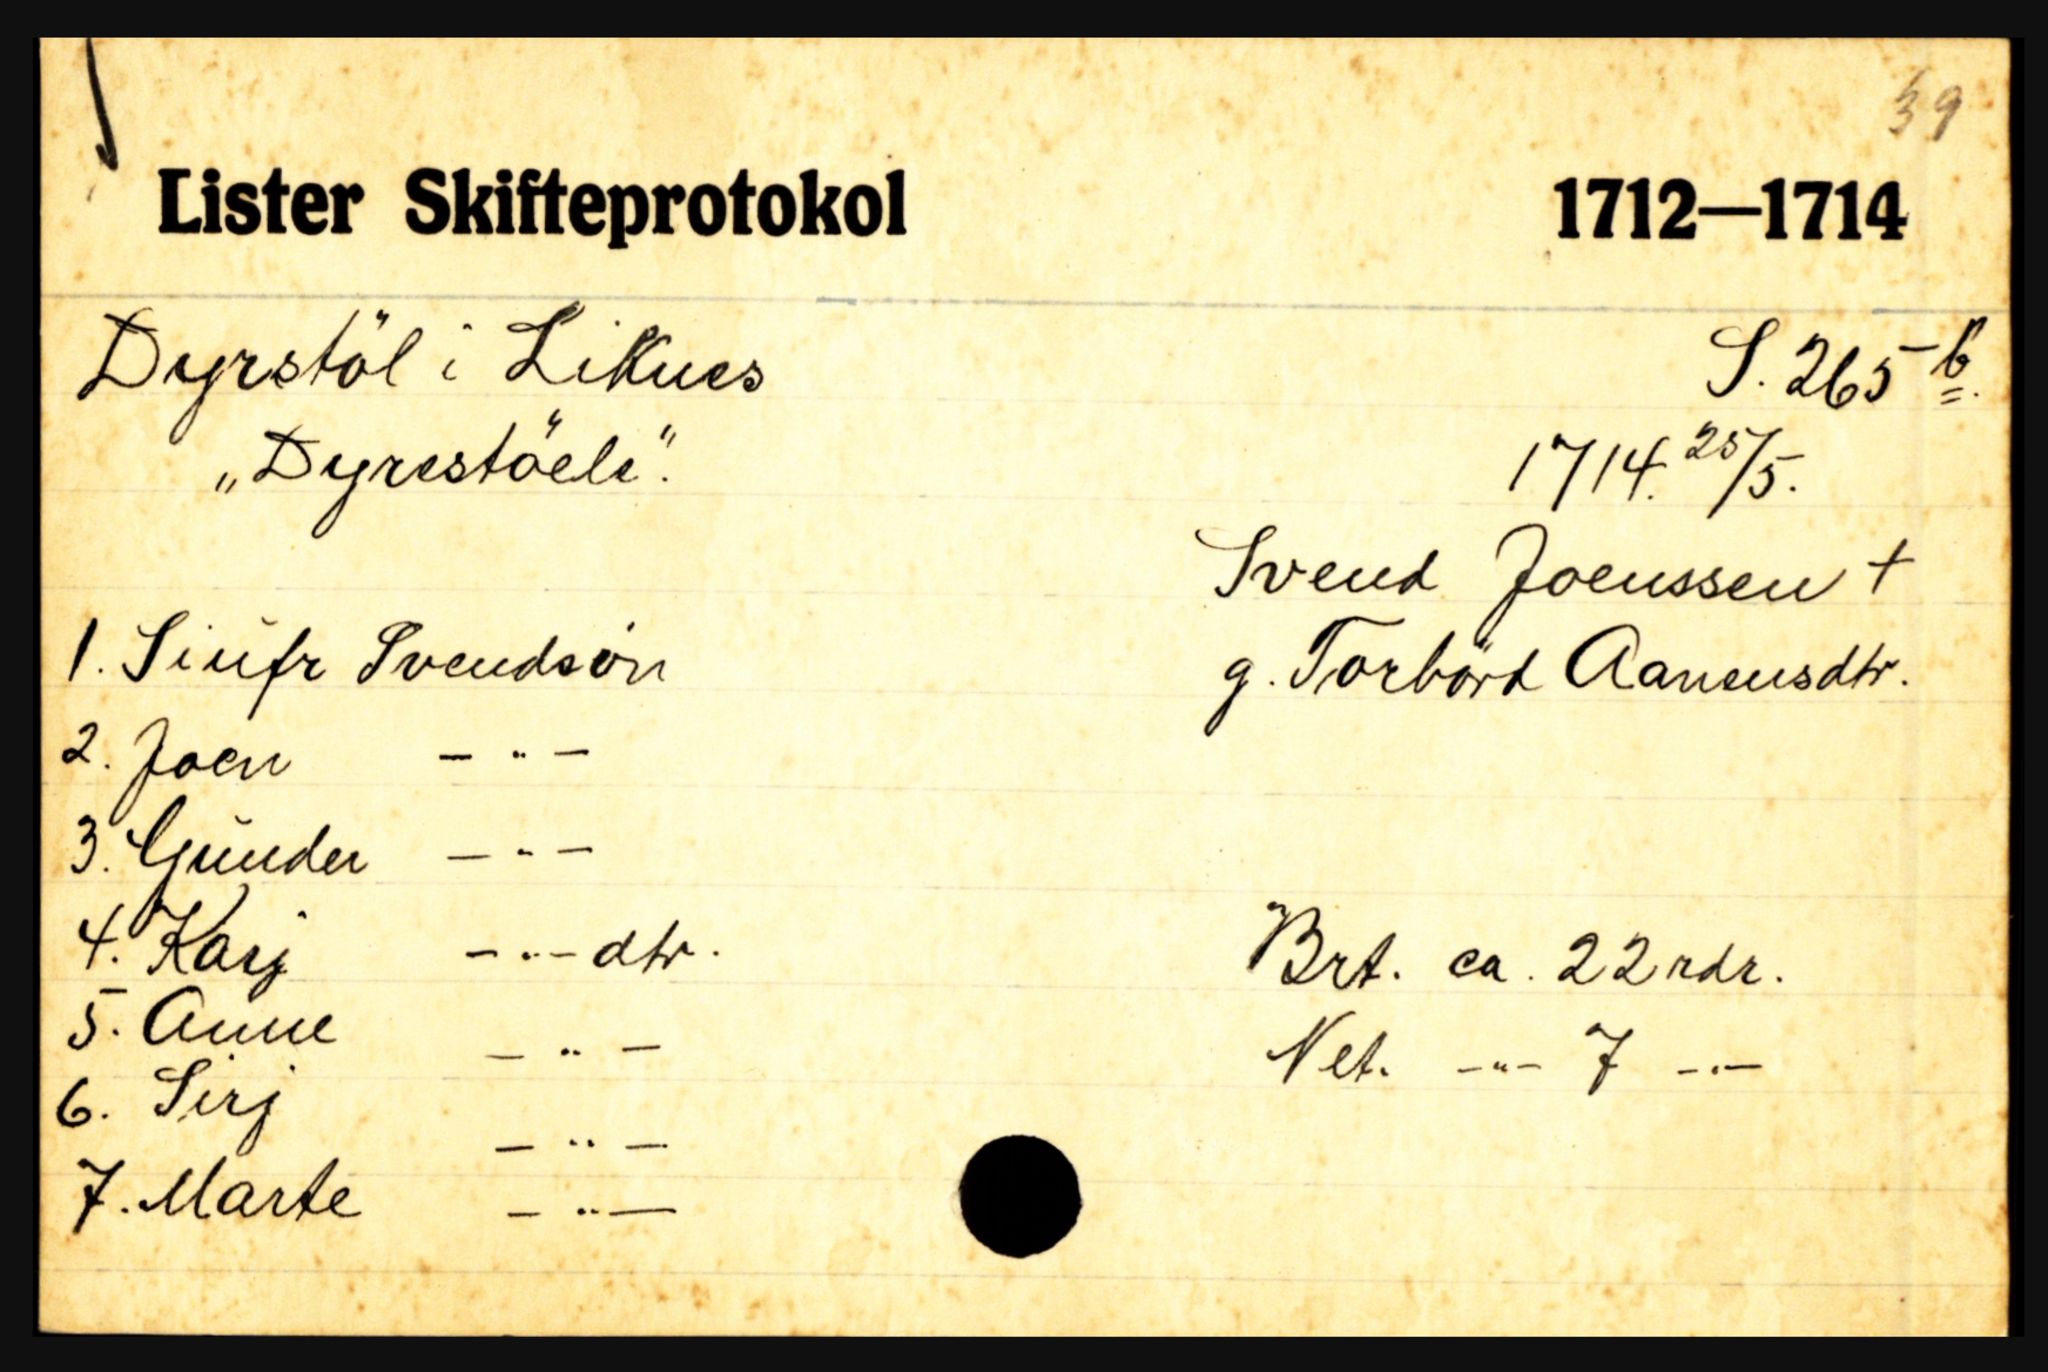 39
Lister Skifteprotokol 1712—1714
Dyrstöl i Liknes S. 265 b.
„Dyrestöele". 1714. 25/5.
Svend Joenssen +
1. Siufr Svendsön g. Torbörd Aanensdtr.
2. Joen — " —
3. Gunder — " —
4. Karj — " — dtr. Brt. ca. 22 rdr.
5. Anne — " — Net. — " — 7 — " —
6. Sirj — " —
7. Marte — " —